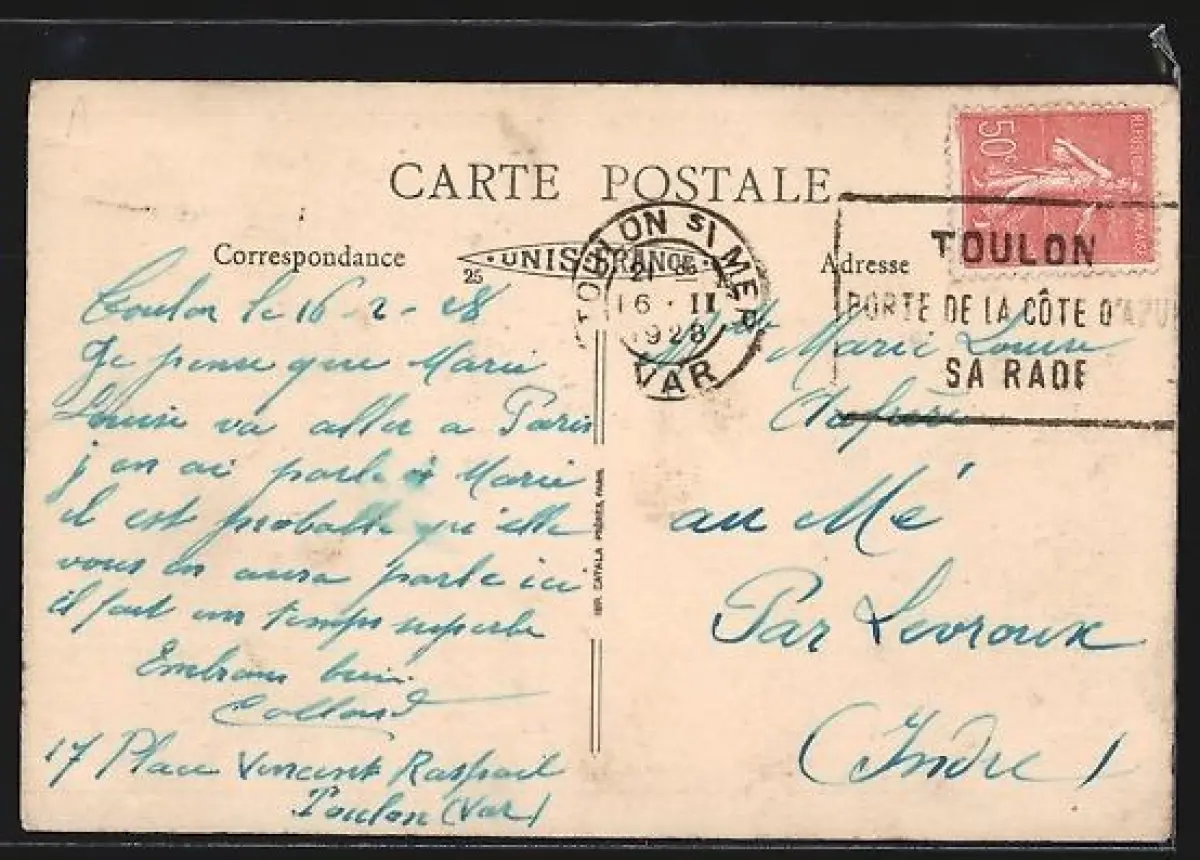 CARTE POSTALE
Correspondance
UNIS FRANCE
25
Adresse
50c
TOULON Sr MER
21
16 · II
1928
VAR
TOULON
PORTE DE LA CÔTE D'AZUR
SA RADE
Toulon le 16-2-28
Je pense que Marie
Louise va aller a Paris
j en ai parle à Marie
il est probable qu'elle
vous en aura parle ici
il fait un temps superbe
Embrasse bien
Collard
17 Place Vincent Raspail
Toulon (Var)
IMP. CATALA FRÈRES, PARIS
Mlle
Marie Louise
au Mé
Par Levroux
(Indre)